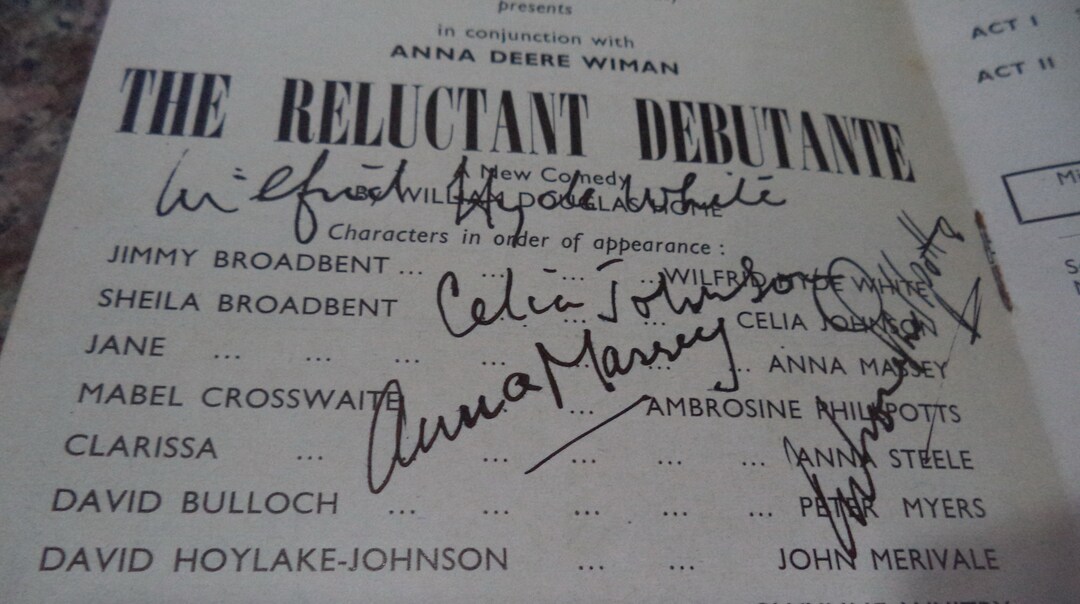 presents
in conjunction with
ANNA DEERE WIMAN
THE RELUCTANT DEBUTANTE
A New Comedy
By WILLIAM DOUGLAS HOME
Wilfrid Hyde White
Characters in order of appearance :
JIMMY BROADBENT ... ... ... ... WILFRID HYDE WHITE
SHEILA BROADBENT ... ... CELIA JOHNSON
Celia Johnson
JANE ... ... ... ... ... ANNA MASSEY
Anna Massey
MABEL CROSSWAITE ... AMBROSINE PHILLPOTTS
Ambrosine Phillpotts
CLARISSA ... ... ... ... ... ANNA STEELE
DAVID BULLOCH ... ... ... ... ... PETER MYERS
DAVID HOYLAKE-JOHNSON ... ... JOHN MERIVALE
ACT I
ACT II